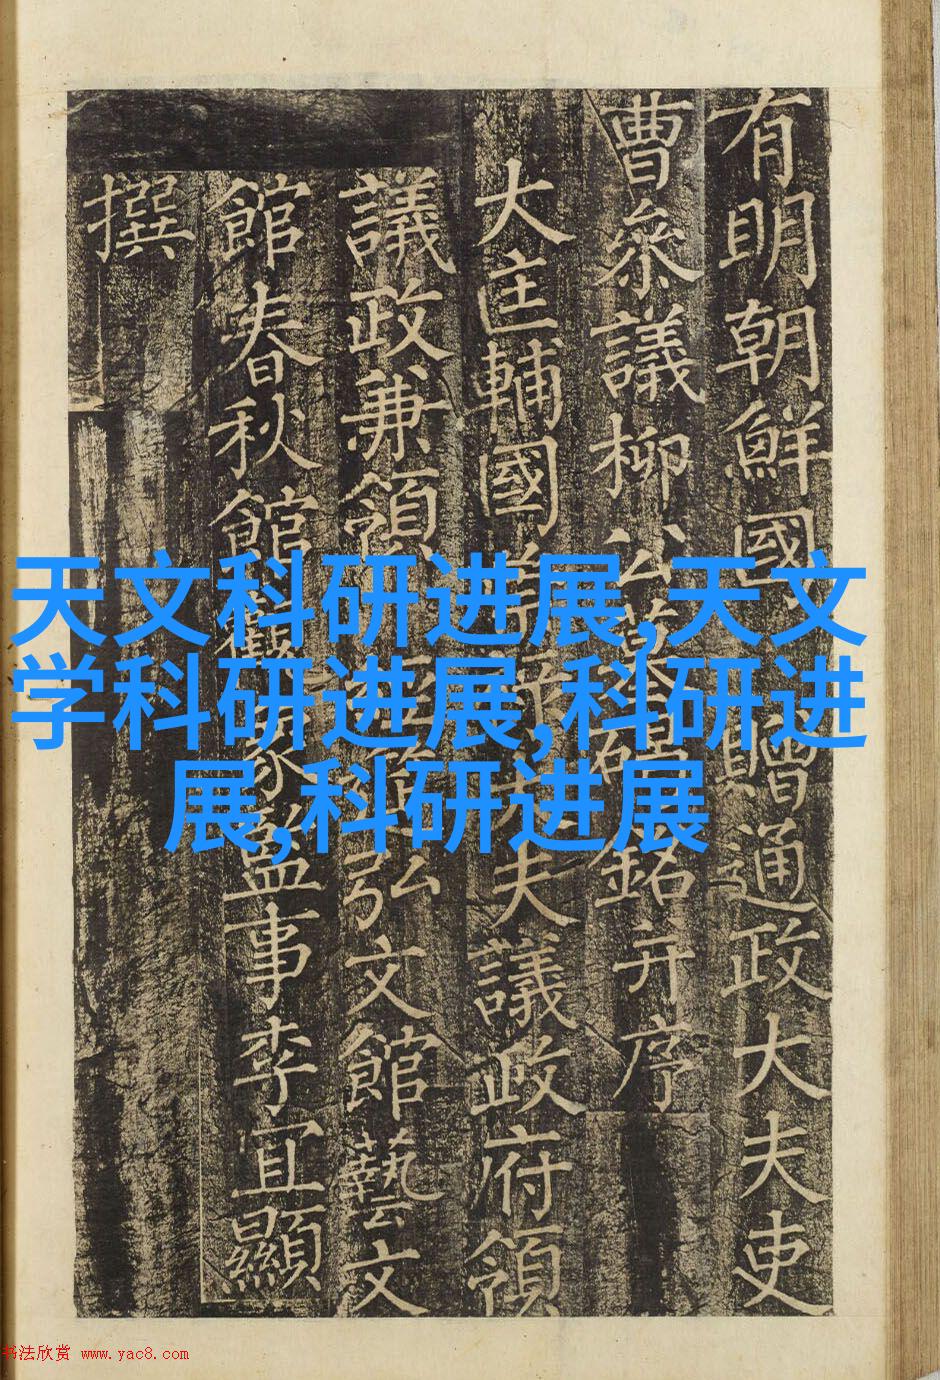 有明朝鮮國贈通政大夫吏
曹叅議柳公墓碣銘并序
大匡輔國夫議政府領
議政兼領弘文館藝文
館春秋館觀監事李宜顯
撰
天文科研进展,天文
学科研进展,科研进
展,科研进展
书法欣赏 www.yac8.com